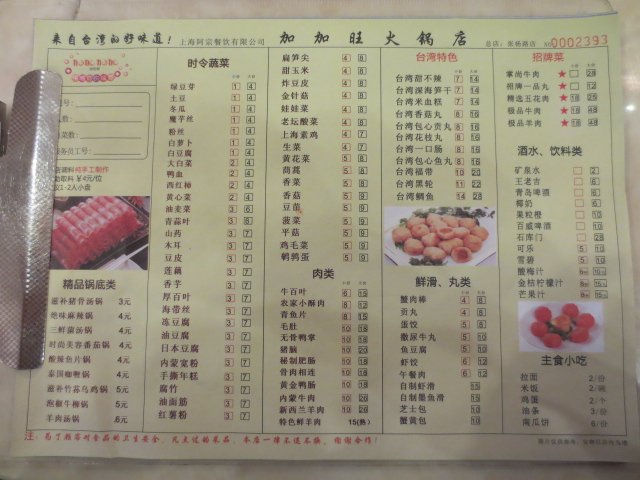 来自台湾的好味道！
上海阿宗餐饮有限公司
加加旺火锅店
总店：张杨路店
0002393
时令蔬菜
绿豆芽 1 4
土豆 1 4
冬瓜 1 4
魔芋丝 1 4
粉丝 1 4
白萝卜 1 4
白豆腐 1 4
大白菜 2 4
鸭血 2 4
西红柿 2 4
黄心菜 2 4
油麦菜 3 6
青蒜叶 3 6
山药 3 7
木耳 3 7
豆皮 3 7
莲藕 3 7
香芋 3 7
厚百叶 3 7
海带丝 3 7
冻豆腐 3 7
油豆腐 3 7
日本豆腐 3 7
内蒙宽粉 3 7
手撕年糕 3 7
腐竹 3 7
油面筋 3 7
红薯粉 3 7
精品锅底类
滋补猪骨汤锅 3元
绝味麻辣锅 4元
三鲜菌汤锅 4元
时尚美容番茄锅 4元
酸辣鱼片锅 4元
泰国咖喱锅 4元
滋补竹荪乌鸡锅 5元
泡椒牛柳锅 5元
羊肉汤锅 6元
扁笋尖 4 8
甜玉米 4 8
炸豆皮 4 8
金针菇 4 8
娃娃菜 4 8
老坛酸菜 4 8
上海素鸡 4 8
生菜 4 8
黄花菜 5 8
茼蒿 5 8
香菜 5 8
香菇 5 9
豆苗 5 9
菠菜 5 9
平菇 5 9
鸡毛菜 5 9
鹌鹑蛋 5 9
肉类
牛百叶 6 15
农家小酥肉 8 12
青鱼片 8 15
毛肚 10 18
无骨鸭掌 10 18
猪脑 10 20
秘制肥肠 10 18
骨肉相连 10 18
黄金鸭肠 10 18
内蒙牛肉 10 20
新西兰羊肉 10 26
特色鲜羊肉 15(熟)
台湾特色
台湾甜不辣 7 14
台湾深海笋干 7 14
台湾米血糕 7 14
台湾香菇丸 8 16
台湾包心贡丸 8 16
台湾花枝丸 8 16
台湾一口肠 8 16
台湾包心鱼丸 8 16
台湾福带 10 20
台湾黑轮 11 22
台湾鲷鱼 14 28
鲜滑、丸类
蟹肉棒 4 8
贡丸 4 8
蛋饺 5 8
撒尿牛丸 5 9
鱼豆腐 5 9
虾饺 6 12
午餐肉 6 12
自制虾滑 15
自制墨鱼滑 15
芝士包 10
蟹黄包 10
招牌菜
掌尚牛肉 ★ 28
招牌一品丸 ★ 28
精选五花肉 ★ 18 25
极品牛肉 ★ 18 48
极品羊肉 ★ 18 48
酒水、饮料类
矿泉水 2
王老吉 6
青岛啤酒 6
椰奶 6
果粒橙 10
百威啤酒 10
石库门 28
可乐 5 10
雪碧 5 10
酸梅汁
金桔柠檬汁
芒果汁
主食小吃
拉面 2/份
米饭 2/碗
鸡蛋 2/个
油条 3/份
南瓜饼 6/份
注：为了顾客对食品的卫生安全，凡点过的菜品，本店一律不退不换，谢谢合作！